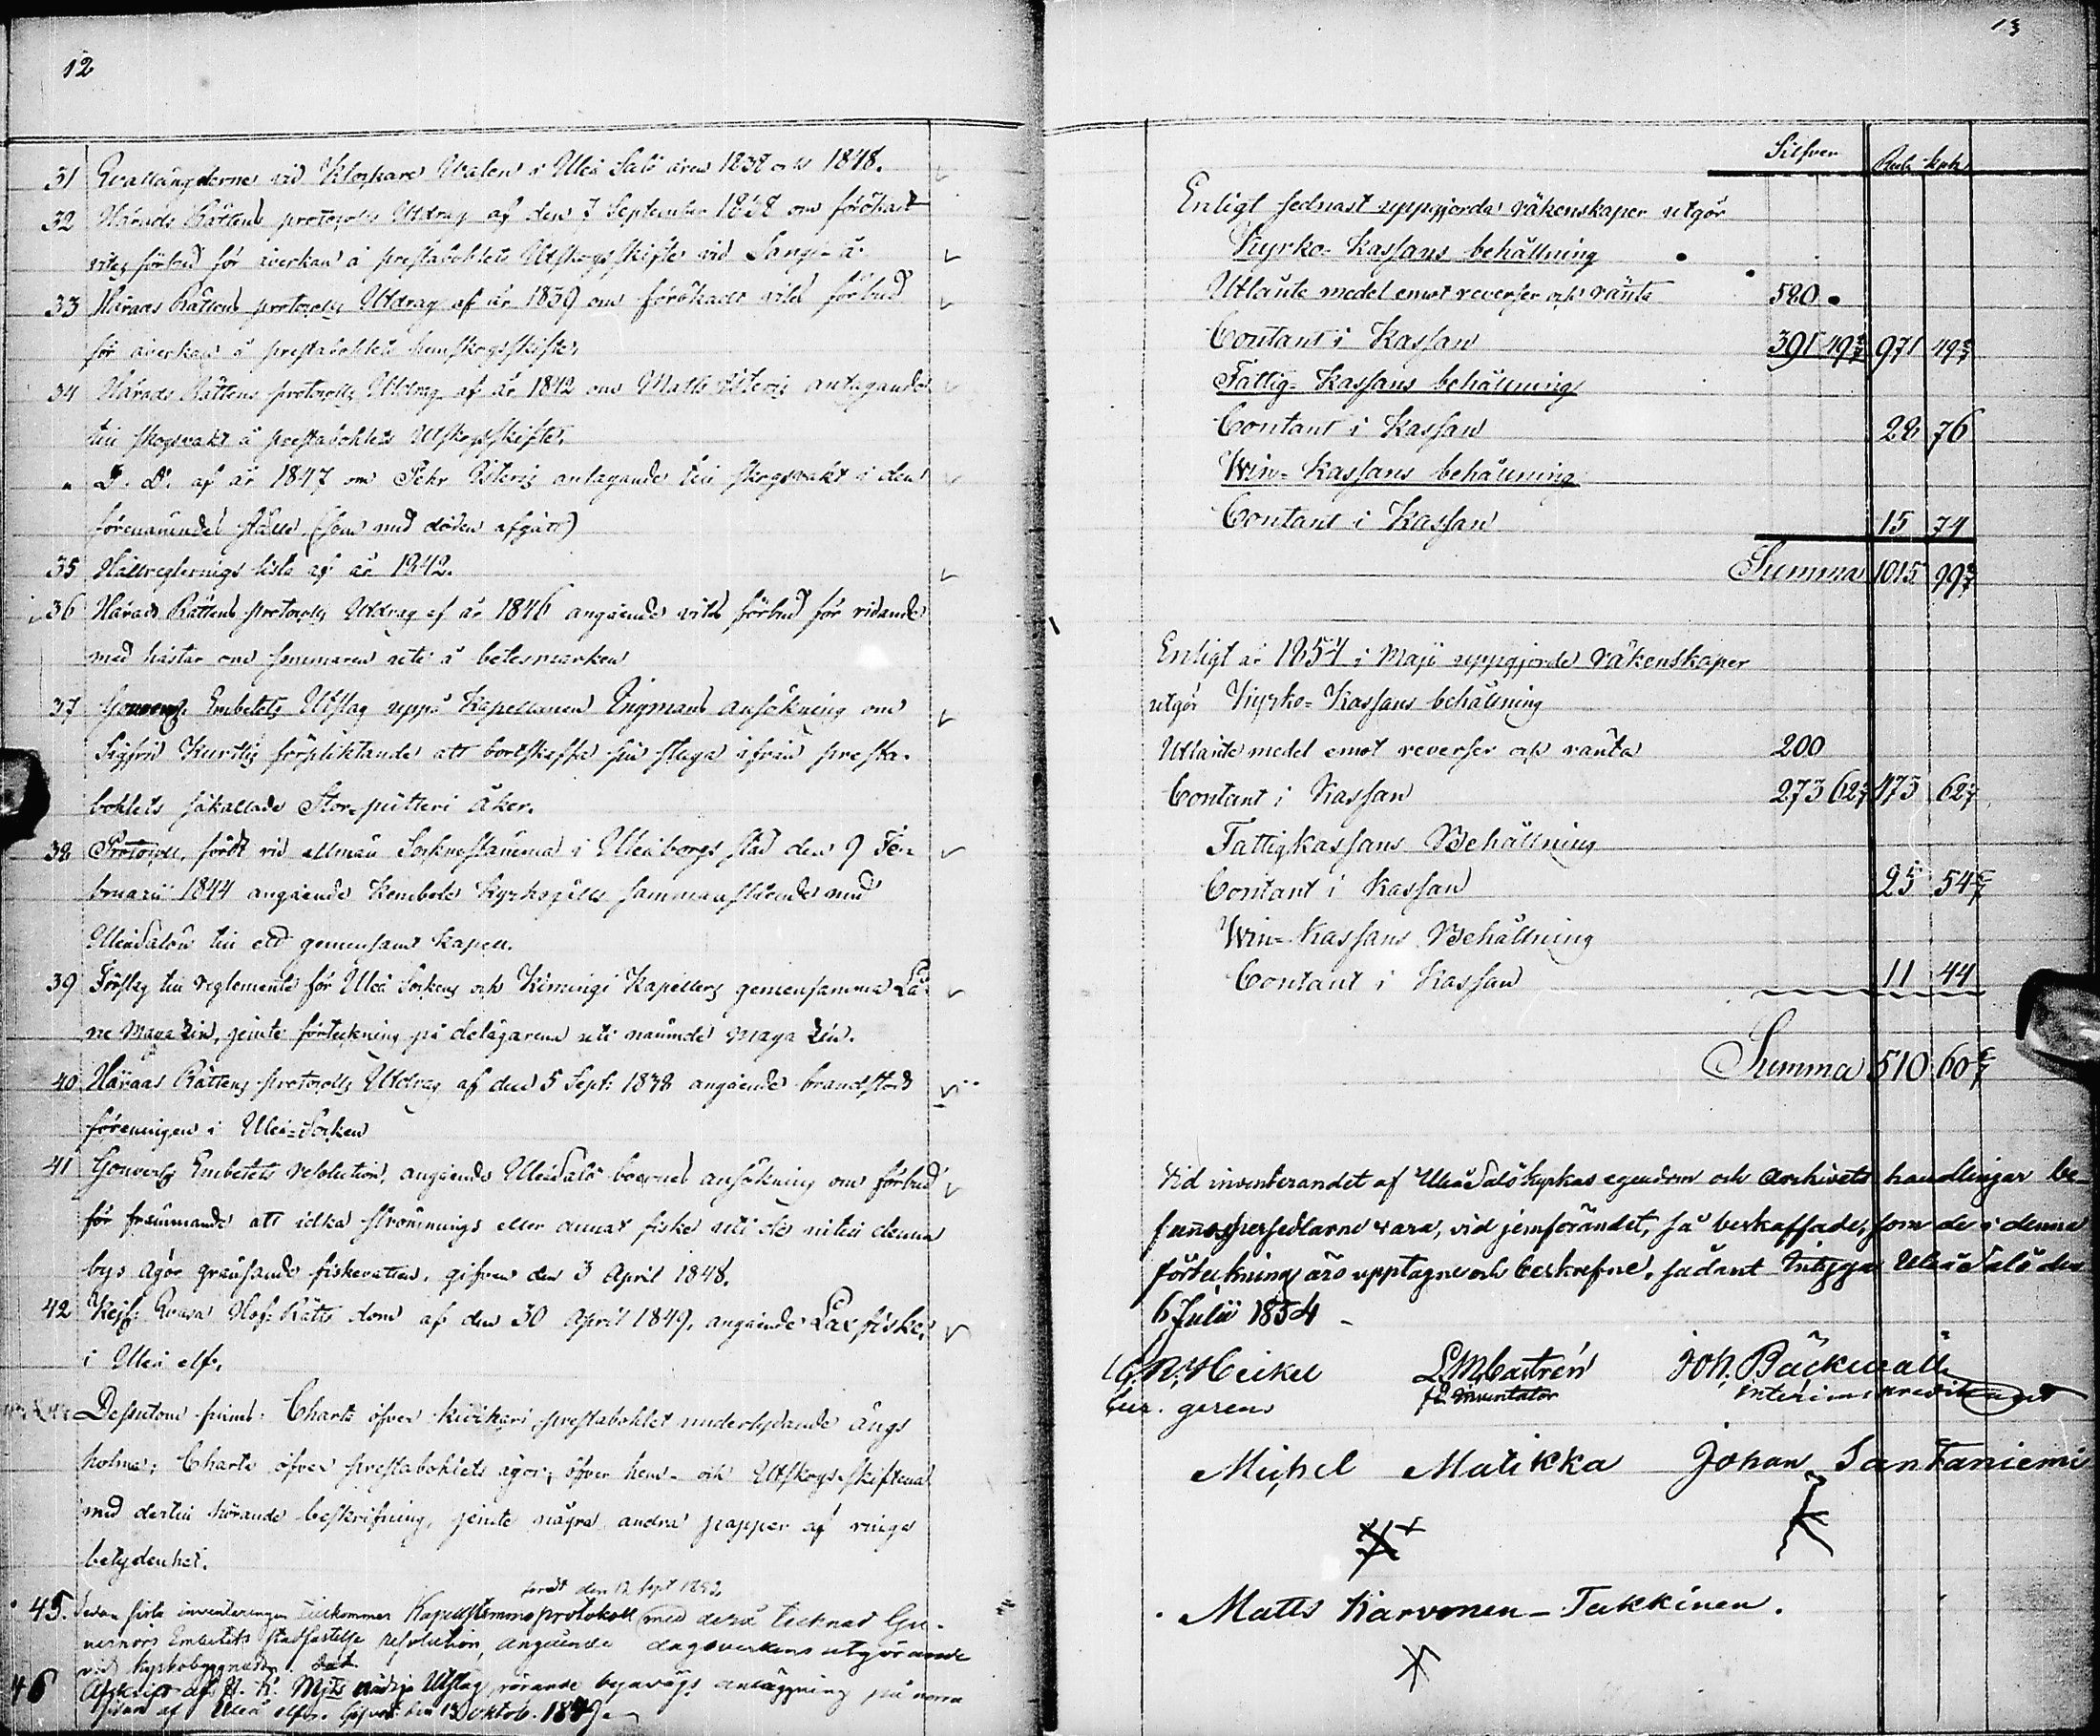 12
31 Qvallängderne vid Klockare Valen i Uleå Salo åren 1838 och 1848.
32 Härads Rättens protocolls Utdrag af den 7 September 1838 om förökadt
vites förbud för åverkan å prestabohlets Utskogsskifte vid Sangi-å.
33 Härads Rättens protocolls Utdrag af år 1839 om förökadt vites förbud
för åverkan å prestabohlets hemskogsskifte,
34 Härads Rättens protocolls Utdrag af år 1842 om Matts antagande
till skogsvakt å prestabohlets Utskogsskifte.
" D. D. af år 1847 om Pehr antagande till skogsvakt i den
förenämndes ställe, (som med döden afgått)
35 Hållreglerings lista af år 1842.
36 Härads Rättens protocolls Utdrag af år 1846 angående vites förbud för ridande
med hästar om sommaren uti å betesmarken
37 Gouvern: Embetets Utslag uppå Kapellanen Engmans ansökning om
Sigfrid förpliktande att bortskaffa sin stuga ifrån presta-
bohlets såkallade Stor-putteri åker.
38 Protocoll, fördt vid allmän Sockenstämma i Uleåborgs stad den 9 Fe-
bruarii 1844 angående Kembele Kyrkogälls sammanslående med
UleåSalou till ett gemensamt Kapell.
39 Förslag till reglemente för Uleå Sockens och Kimingi Kapellers gemensamma Lå-
ne Magazin, jemte förteckning på delägarene uti nämnde Magazin.
40 Härads Rättens protocolls Utdrag af den 5 Sept: 1838 angående brandstods
föreningen i Uleå-Socken
41 Gouvern: Embetets resolution, angående UleåSalo boernes ansökning om förbud
för främmande att idka strömmings eller annat fiske uti de intill denna
bys ägor gränsande fiskevatten, gifven den 3 April 1848.
42 Kejs: Wasa Hof-Rätts dom af den 30 April 1849, angående Laxfisket
i Uleå elf.
Dessutom finnes: Charta öfver kivikari prestabohlet underlydande ängs
holma; Charta öfver prestabohlets ägor, öfver hem- och Utskogs-skiftena
med dertill hörande beskrifning, jemte några andra papper af ringa
betydenhet.
fördt den 12 Sept 1852,
45. Sedan sista inventeringen tillkommer Kapellstämmoprotokoll med derå tecknad Gu-
vernörs Embetets stadfästelse resolution, angående dagsverkens utgörande
vid kyrkobyggnaden.
46 Afskrift af H. K. Mjts nådiga Utslag, rörande byawägs anläggning på norra
sidan af Uleå elf. Gifvet den 13 Oktob. 1849.
13
Silfver Rub. kop.
Enligt sednast uppgjorda räkenskaper utgör
Kyrko-Kassans behållning
Utlånte medel emot reverser och ränta 580
Contant i Kassan 391 49 3/7 971 49 3/7
Fattig-Kassans behållning
Contant i Kassan 28 76
Win-Kassans behållning
Contant i Kassan 15 74
Summa 1015 99 3/7
Enligt år 1854 i Maji uppgjorde räkenskaper
utgör Kyrko-Kassans behållning
Utlånte medel emot reverser och ränta 200
Contant i Kassan 273 62 473 62
Fattigkassans Behållning
Contant i Kassan 25 54
Win-Kassans Behållning
Contant i Kassan 11 44
Summa 510 60 6/7
Vid inventerandet af UleåSalo kyrkas egendom och archivets handlingar be-
funos persedlarne vara, vid jemförandet, så beskaffade, som de i denna
förteckning äro upptagne och beskrefne, sådant intyga UleåSalo den
6 Julii 1854
G. N. Heikel L M Castrén Joh. Bäckvall
cur. gerens fd inventator interims predikant
Michel Matikka Johan Santaniemi
Matts Karvonen-Takkinen.